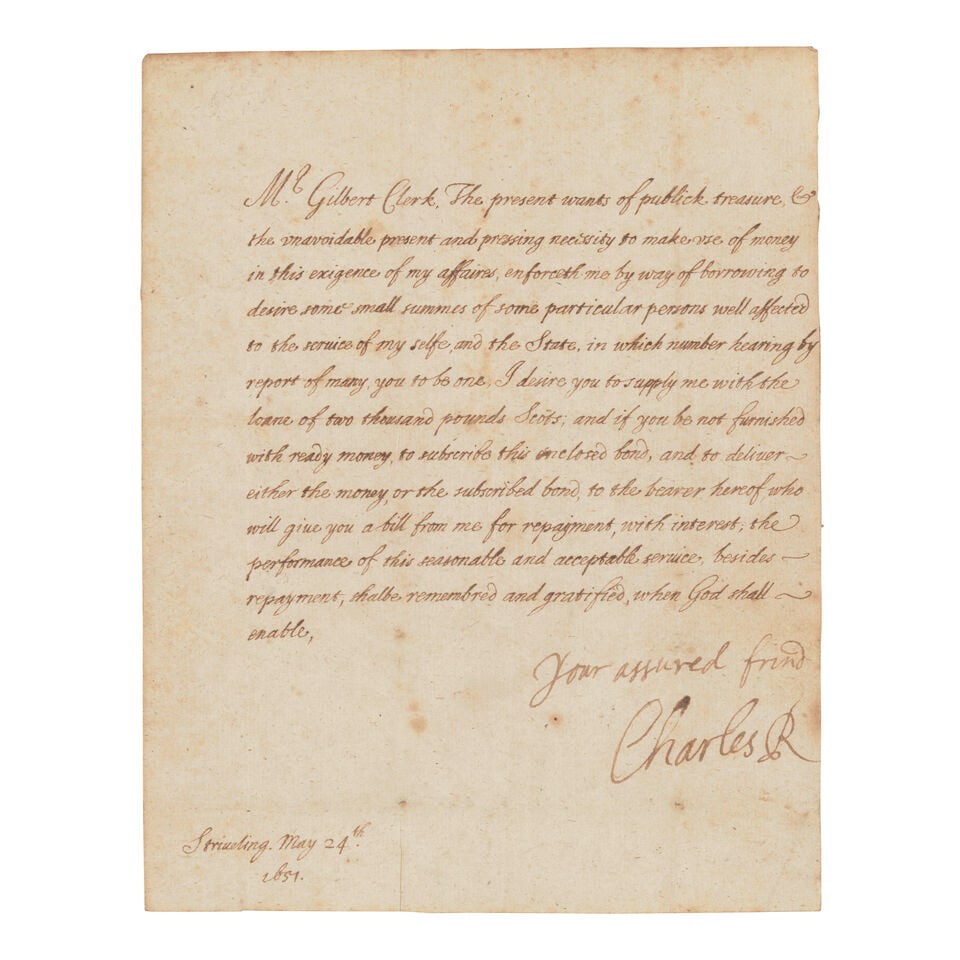 Mr. Gilbert Clerk, The present wants of publick treasure, &
the vnavoidable present and pressing necessity to make vse of money
in this exigence of my affaires, enforceth me by way of borrowing to
desire some small summes of some particular persons well affected
to the service of my selfe, and the State, in which number hearing by
report of many, you to be one, I desire you to supply me with the
loane of two thousand pounds Scots; and if you be not furnished
with ready money, to subscribe this enclosed bond, and to deliver
either the money, or the subscribed bond, to the bearer hereof, who
will give you a bill from me for repayment, with interest; the
performance of this seasonable and acceptable service, besides
repayment, shalbe remembred and gratified, when God shall
enable,
Your assured frind
Charles R
Striveling. May 24th.
1651.